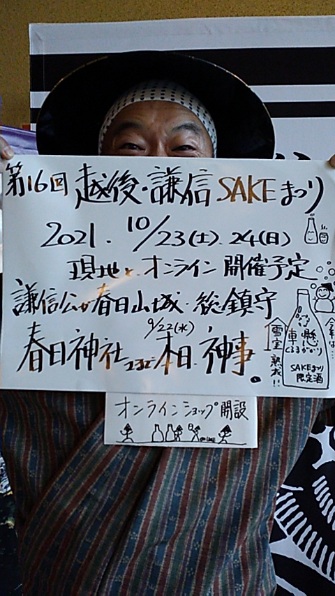 第16回 越後・謙信 SAKEまつり
2021. 10/23(土).24(日)
現地とオンライン開催予定
謙信公が春日山城・総鎮守
9/22(水)
春日神社 本日、神事。
SAKEまつり
限定酒
オンラインショップ開設